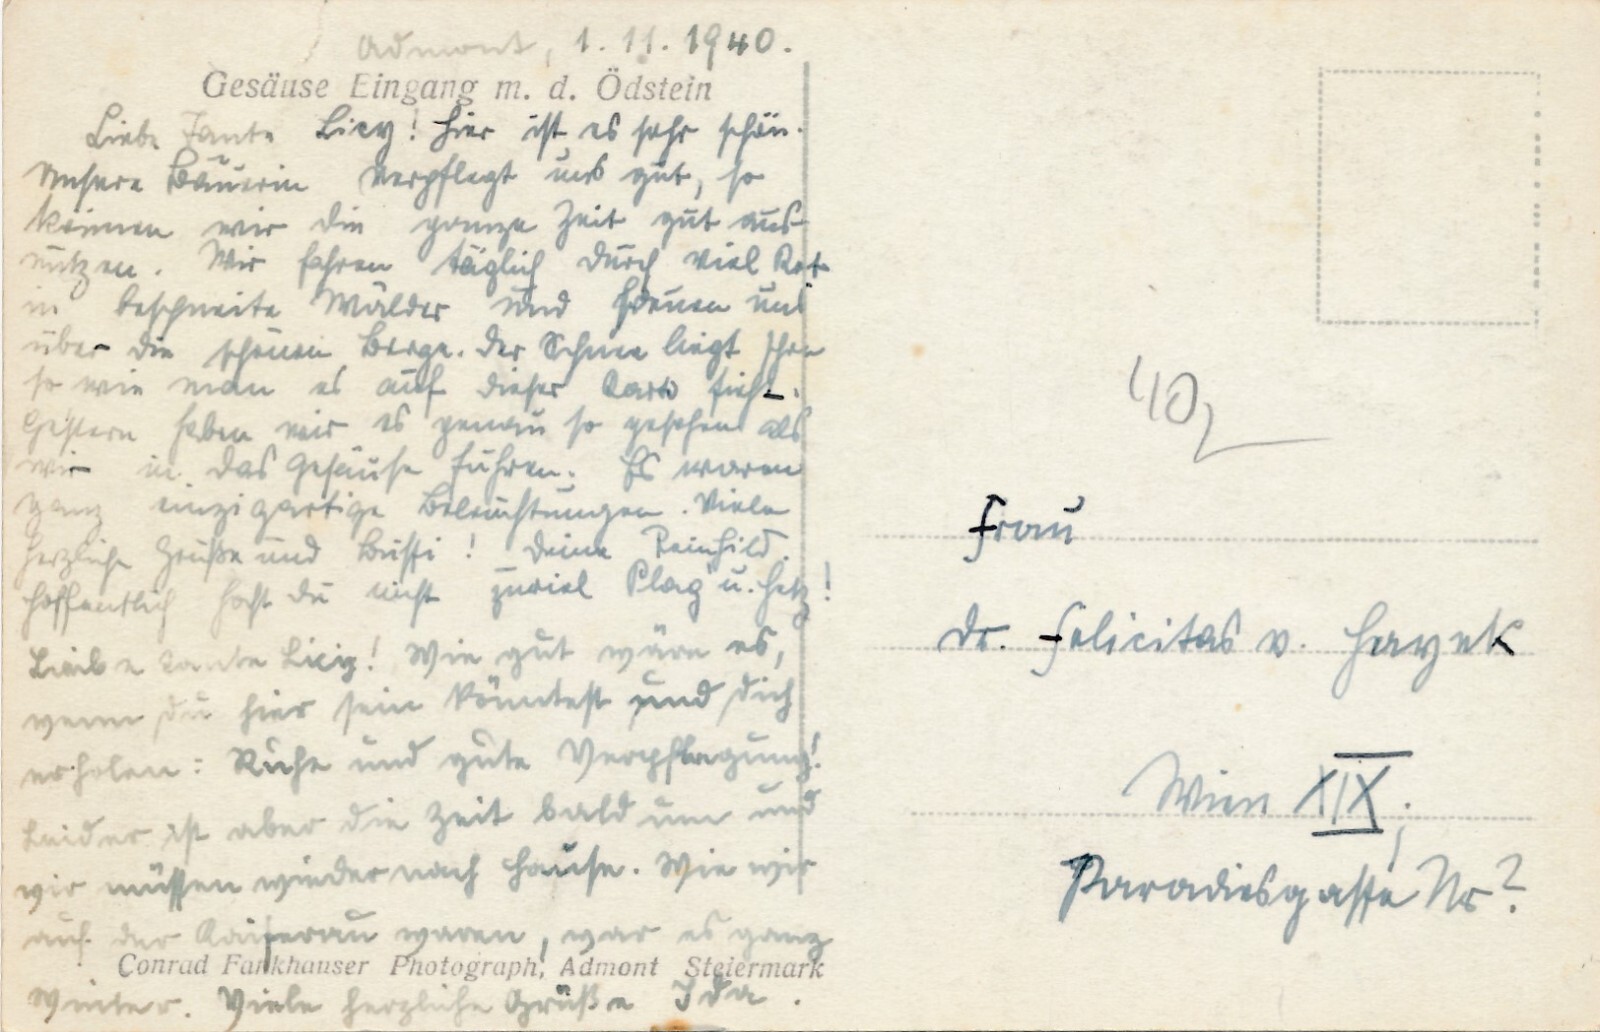 Admont, 1.11.1940.
Gesäuse Eingang m. d. Ödstein
Liebe Tante Licy! Hier ist es sehr schön.
Unsere Bäuerin verpflegt uns gut, so
können wir die ganze Zeit gut aus-
nützen. Wir fahren täglich durch viel Kot
in beschneite Wälder und freuen uns
über die schönen Berge. Der Schnee liegt
so wie man es auf dieser Karte sieht.
Gestern haben wir es genau so gesehen als
wir in das Gesäuse fuhren. Es waren
ganz einzigartige Beleuchtungen. Viele
herzliche Grüße und Bussi! Deine Reinhild.
Hoffentlich hast Du nicht zuviel Plag u. Hetz!
Liebe Tante Licy! Wie gut wäre es,
wenn Du hier sein könntest und Dich
erholen: Ruhe und gute Verpflegung!
Leider ist aber die Zeit bald um und
wir müssen wieder nach Hause. Wie wir
auf der Kaiserau waren, war es ganz
Conrad Fankhauser Photograph, Admont Steiermark
Winter. Viele herzliche Grüße Ida.
40
Frau
Dr. Felicitas v. Hayek
Wien XIX,
Paradiesgasse Nr?